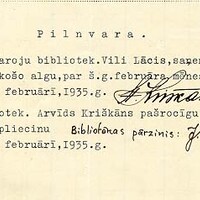 Pilnvara.
aroju bibliotek.Vili Lācis,saņem
košo algu,par š.g.februāra mēnes
februārī,1935.g.
otek. Arvīds Kriškāns pašrocīgu
pliecinu Bibliotēkas pārzinis:
februārī,1935.g.